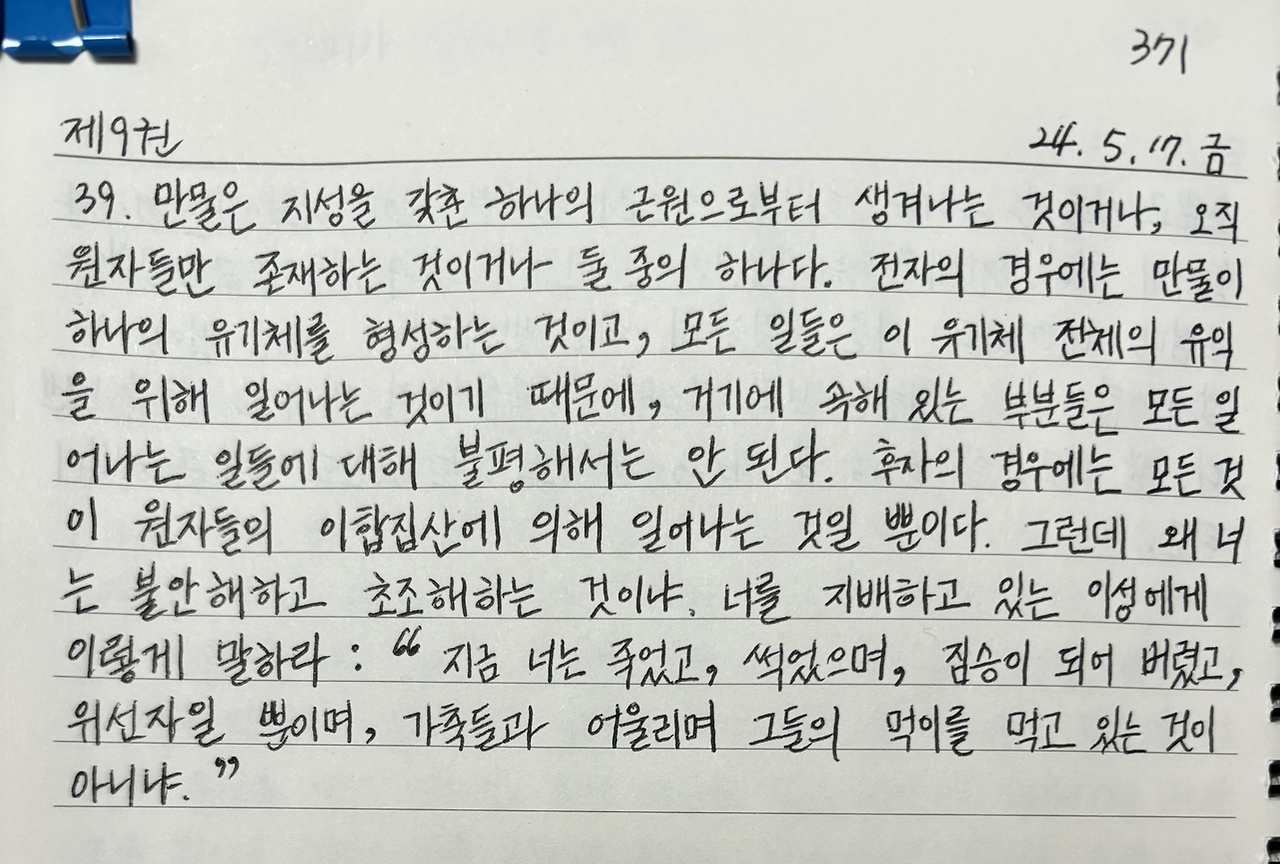 371
제9권 24. 5. 17. 금
39. 만물은 지성을 갖춘 하나의 근원으로부터 생겨나는 것이거나, 오직
원자들만 존재하는 것이거나 둘 중의 하나다. 전자의 경우에는 만물이
하나의 유기체를 형성하는 것이고, 모든 일들은 이 유기체 전체의 유익
을 위해 일어나는 것이기 때문에, 거기에 속해 있는 부분들은 모든 일
어나는 일들에 대해 불평해서는 안 된다. 후자의 경우에는 모든 것
이 원자들의 이합집산에 의해 일어나는 것일 뿐이다. 그런데 왜 너
는 불안해하고 초조해하는 것이냐. 너를 지배하고 있는 이성에게
이렇게 말하라 : “ 지금 너는 죽었고, 썩었으며, 짐승이 되어 버렸고,
위선자일 뿐이며, 가축들과 어울리며 그들의 먹이를 먹고 있는 것이
아니냐. ”